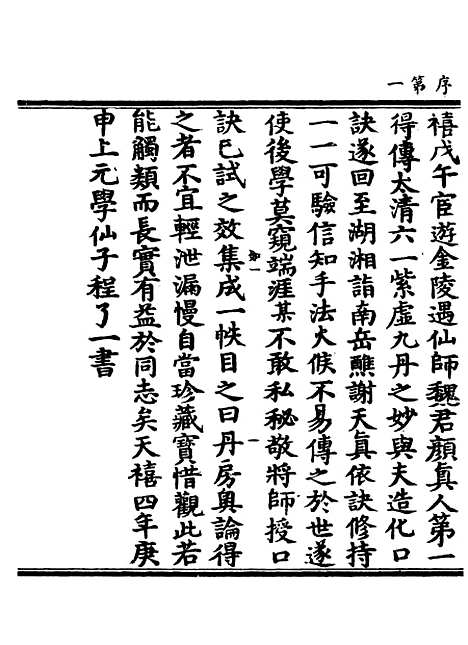 序第一
禧戊午宦遊金陵遇仙師魏君顏真人第一
得傳太清六一紫虛九丹之妙與夫造化口
訣遂回至湖湘詣南岳醮謝天真依訣修持
一一可驗信知手法火候不易傳之於世遂
使後學莫窺端涯某不敢私秘敬將師授口
訣已試之效集成一帙目之曰丹房奧論得
之者不宜輕泄漏慢自當珍藏寶惜觀此若
能觸類而長實有益於同志矣天禧四年庚
申上元學仙子程了一書